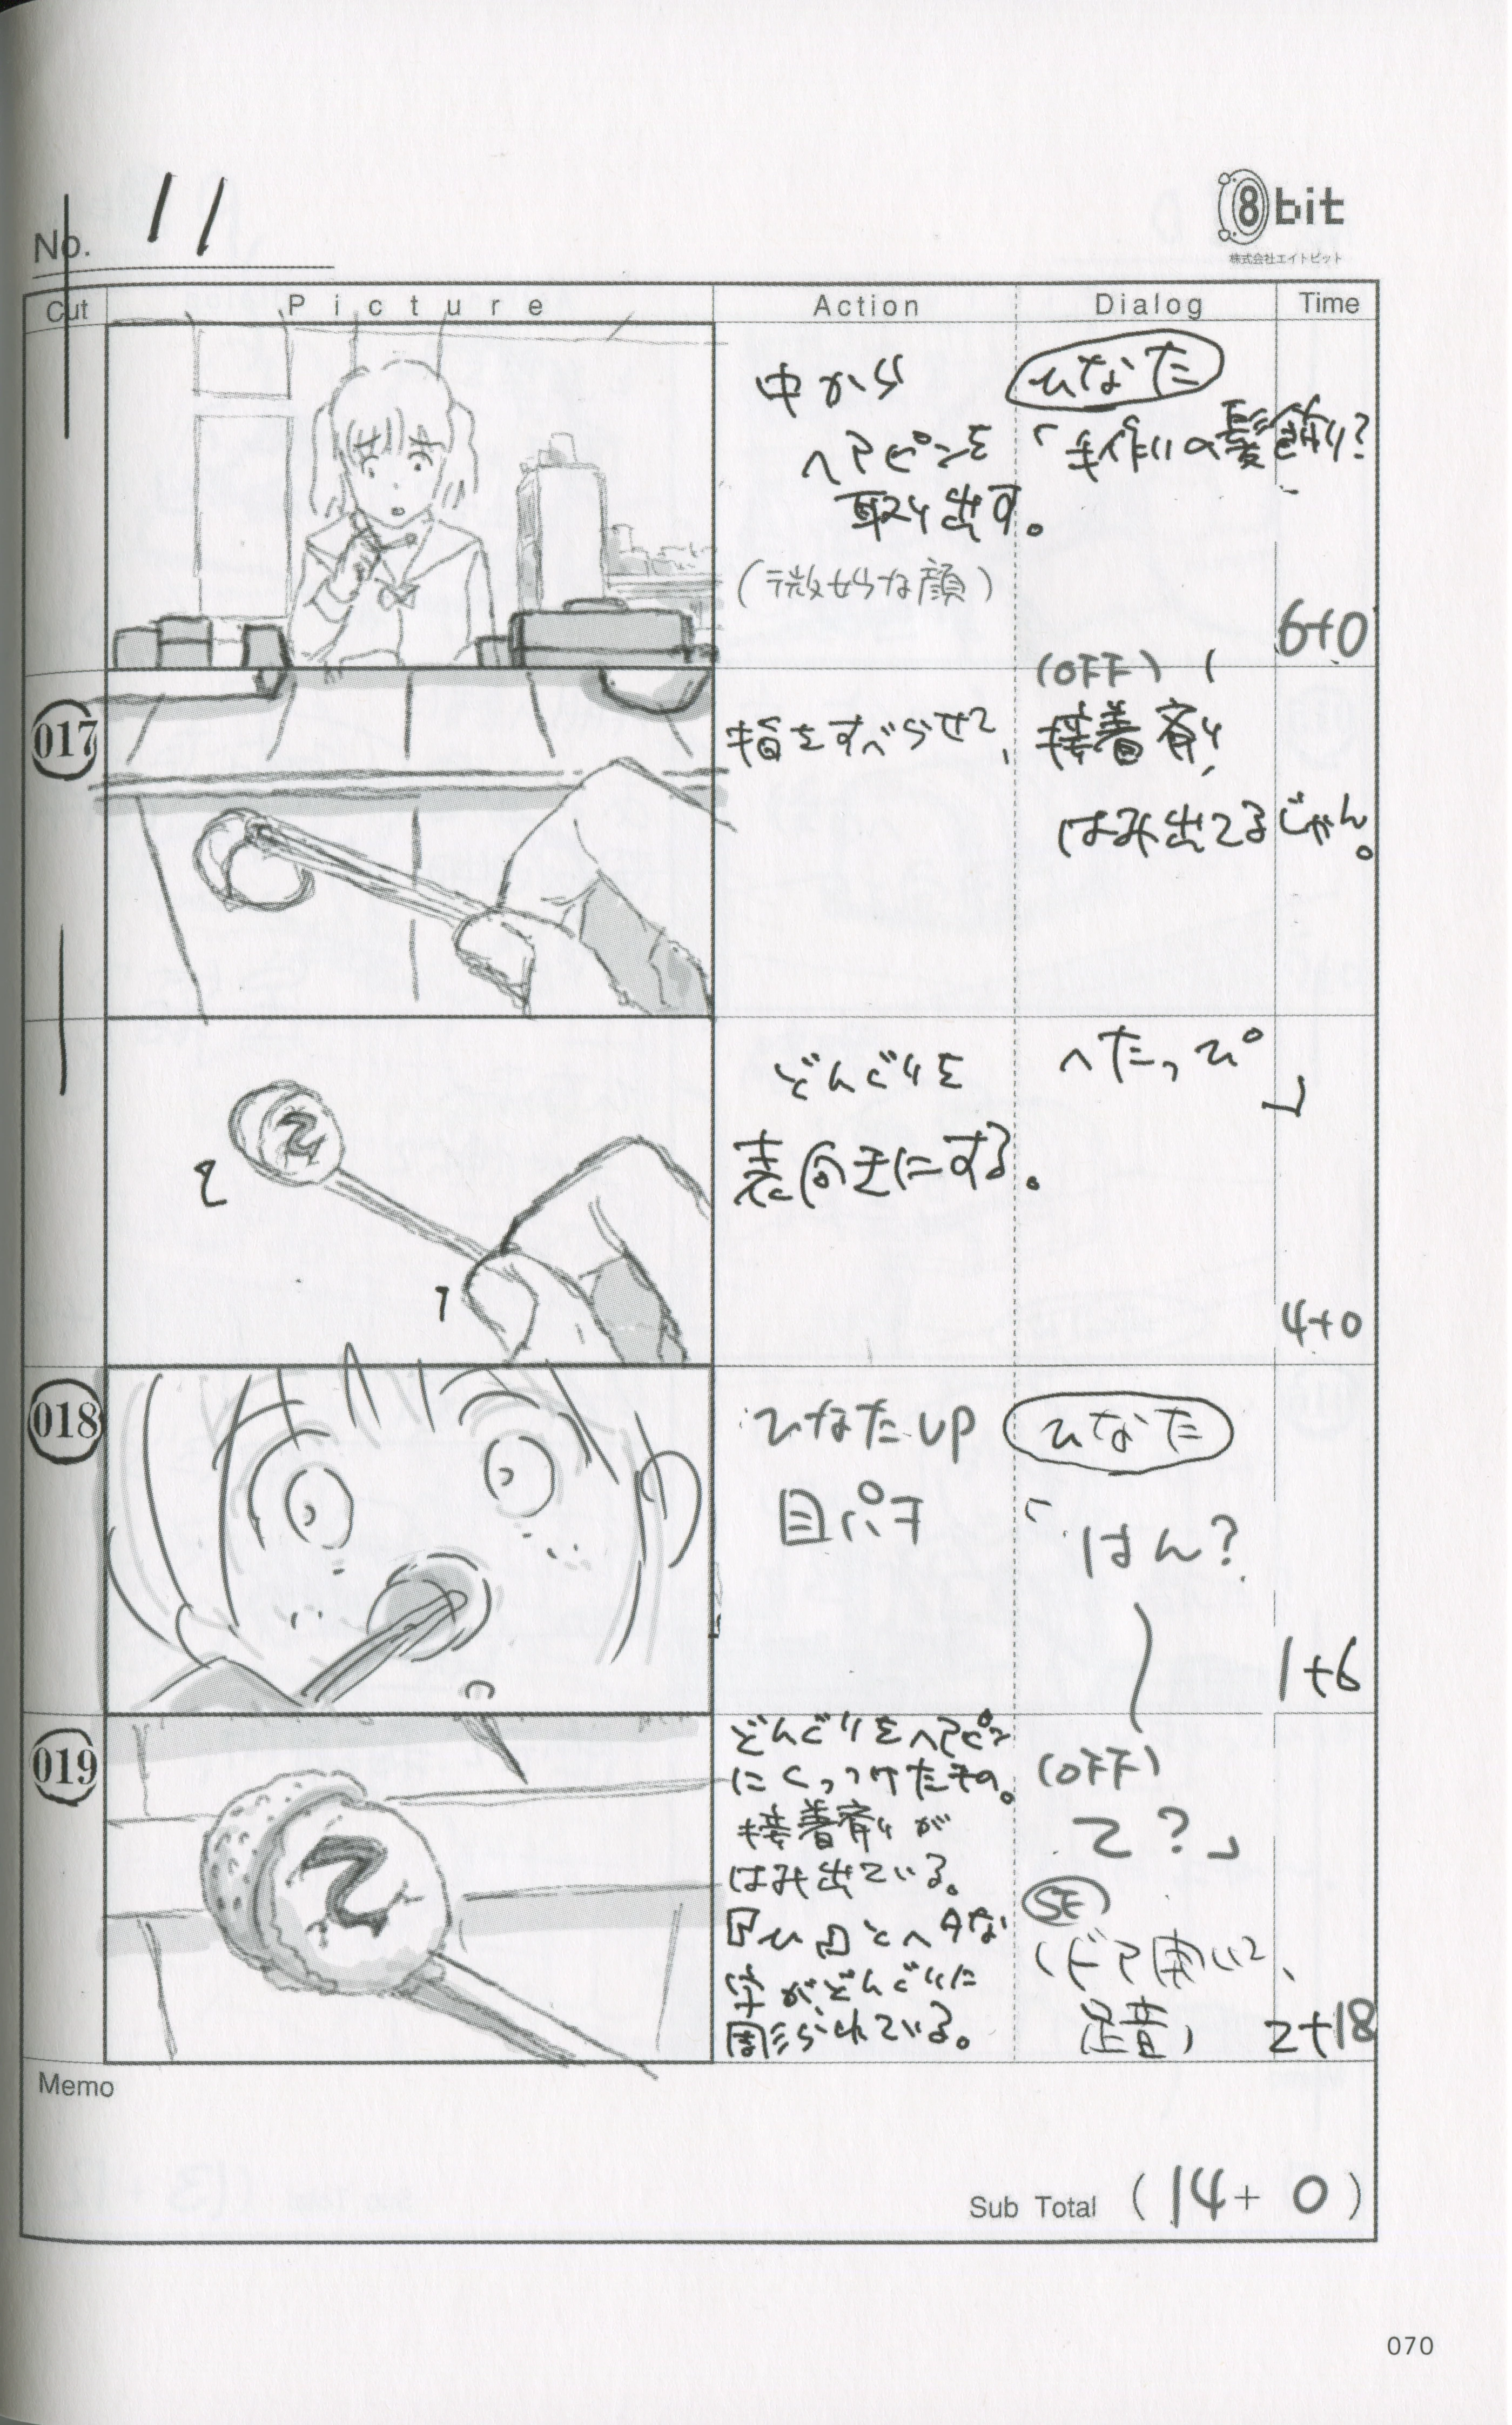 No. 11
8bit
株式会社エイトビット
Cut Picture Action Dialog Time
中から
ヘアピンを
取り出す。
(微妙な顔)
ひなた
「手作りの髪飾り?
6+0
017
指をすべらせて、
(OFF)
接着剤、
はみ出てるじゃん。
どんぐりを
表向きにする。
へたっぴ」
4+0
018
ひなたUP
目パチ
ひなた
「はん?
1+6
019
どんぐりをヘアピン
にくっつけたもの。
接着剤が
はみ出ている。
とヘタな
字がどんぐりに
彫られている。
(OFF)
て?」
SE
(ドア開いて、
足音)
2+18
Memo
Sub Total (14+0)
070